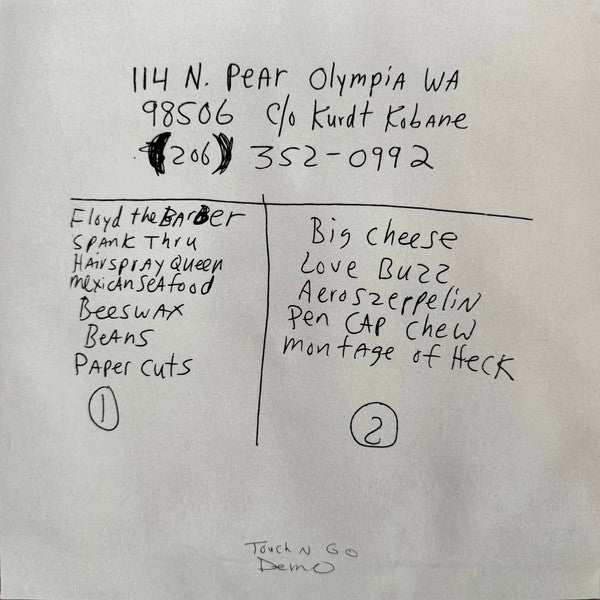 114 N. Pear Olympia WA
98506 c/o Kurdt Kobane
(206) 352-0992
Floyd the Barber
Spank Thru
Hairspray Queen
Mexican Seafood
Beeswax
Beans
Paper cuts
1
Big cheese
Love Buzz
Aeroszeppelin
Pen CAP Chew
montage of Heck
2
Touch N Go
Demo